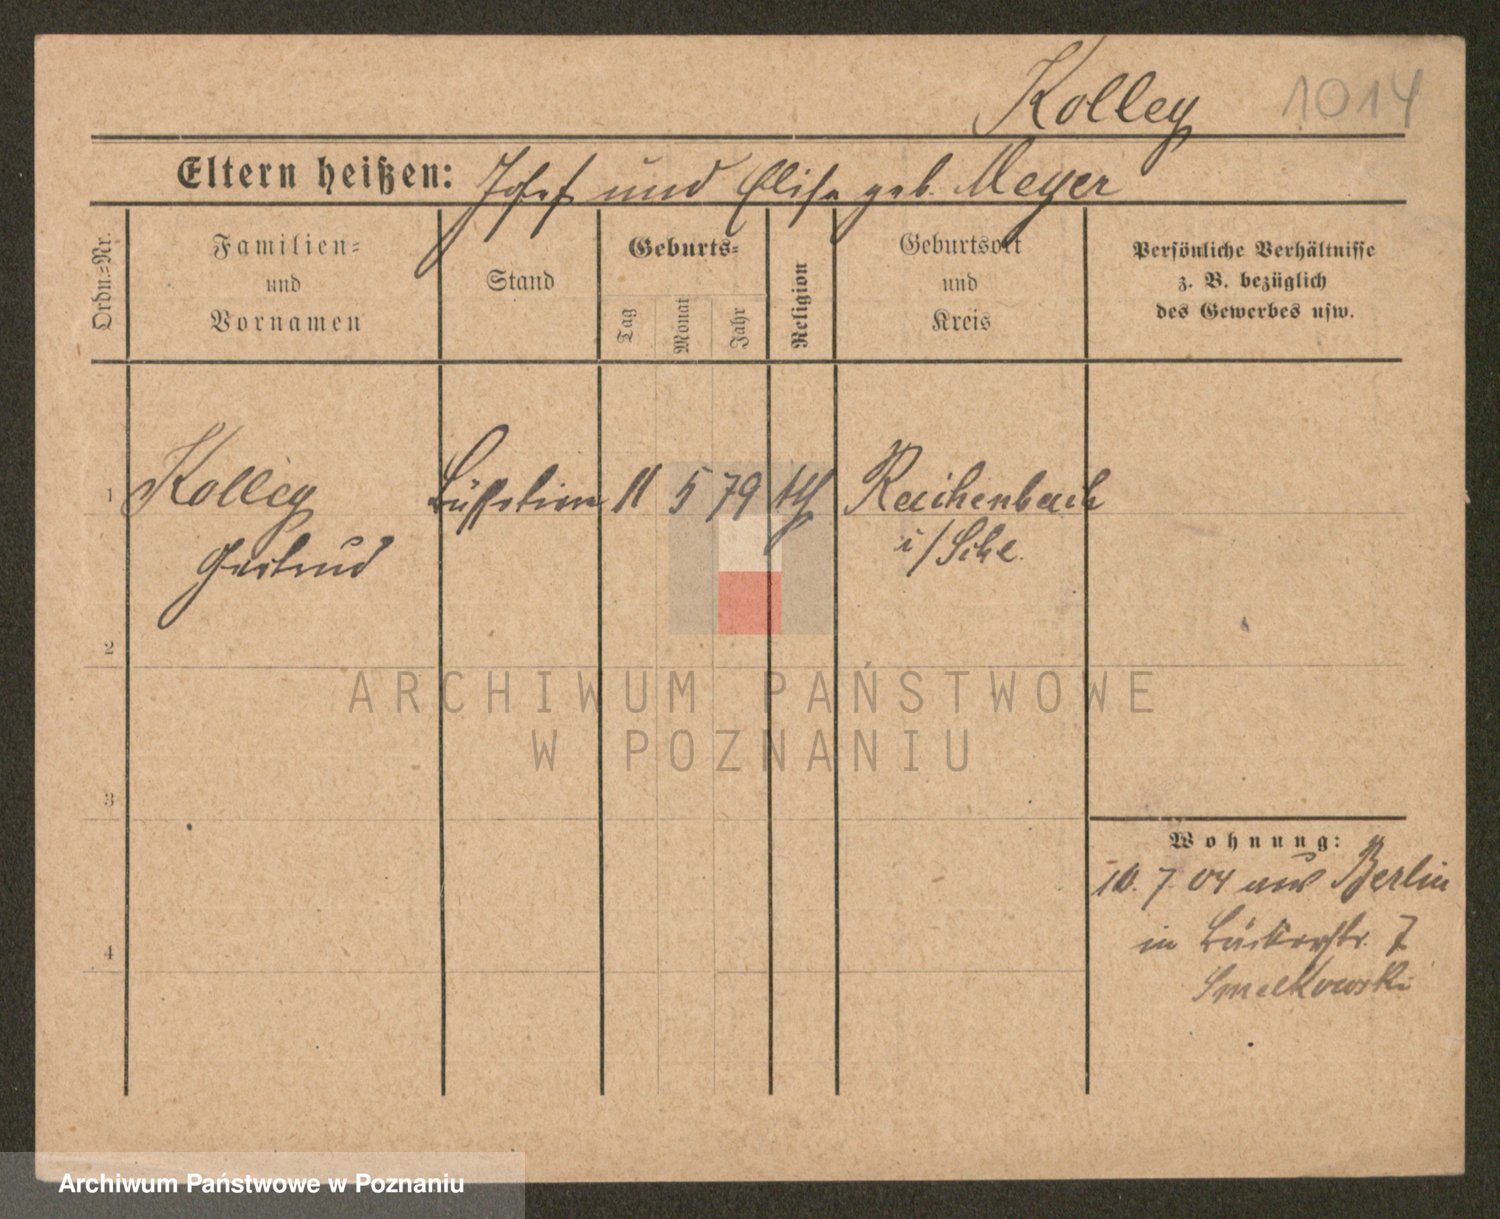 Kolley 1014
Eltern heißen: Josef und Elise geb. Meyer
Ordn.=Nr.
Familien=
und
Vornamen
Stand
Geburts=
Tag
Monat
Jahr
Religion
Geburtsort
und
Kreis
Persönliche Verhältnisse
z. B. bezüglich
des Gewerbes usw.
1 Kolley 11 5 79 Reichenbach
Gertrud i/Schl.
2
ARCHIWUM PAŃSTWOWE
W POZNANIU
3
Wohnung:
10. 7. 04 aus Berlin
in Bäckerstr. 7
Smelkowski
4
Archiwum Państwowe w Poznaniu